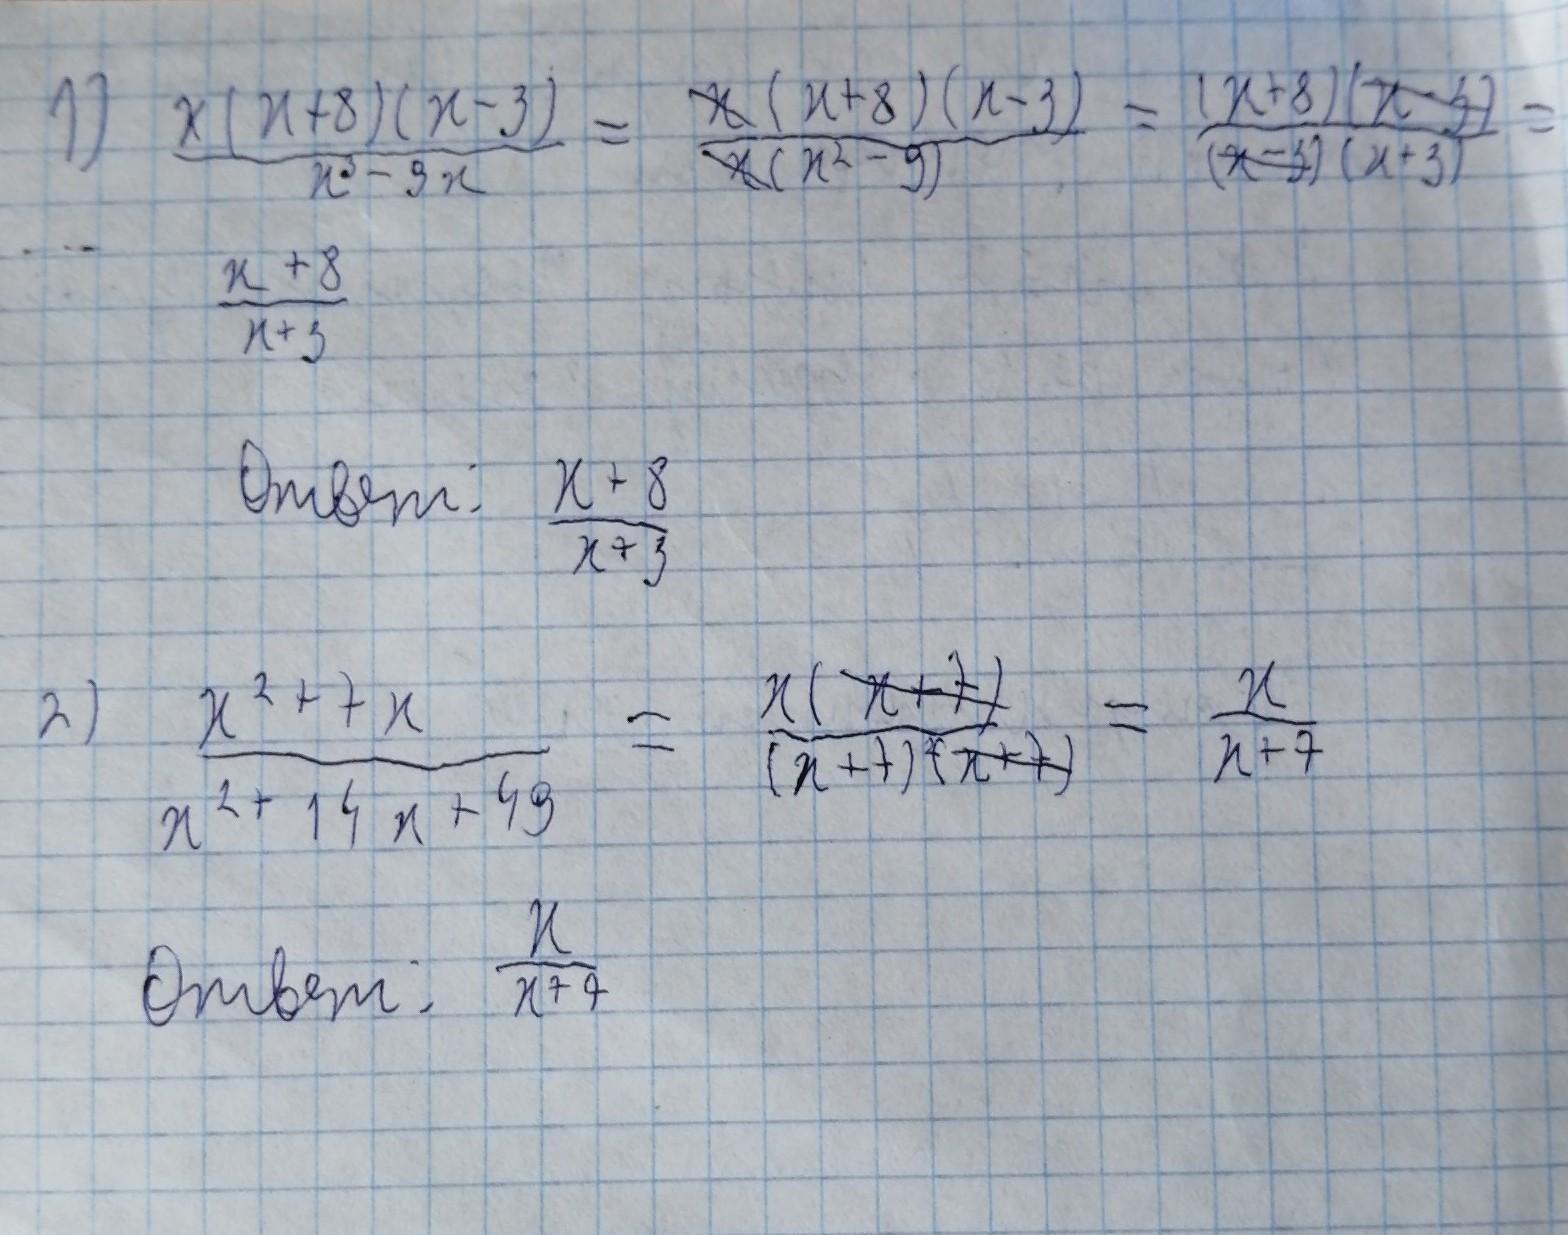 1) x(x+8)(x-3)/x³-9x = x(x+8)(x-3)/x(x²-9) = (x+8)(x-3)/(x-3)(x+3) =
... x+8/x+3
Ответ: x+8/x+3
2) x²+7x/x²+14x+49 = x(x+7)/(x+7)(x+7) = x/x+7
Ответ: x/x+7